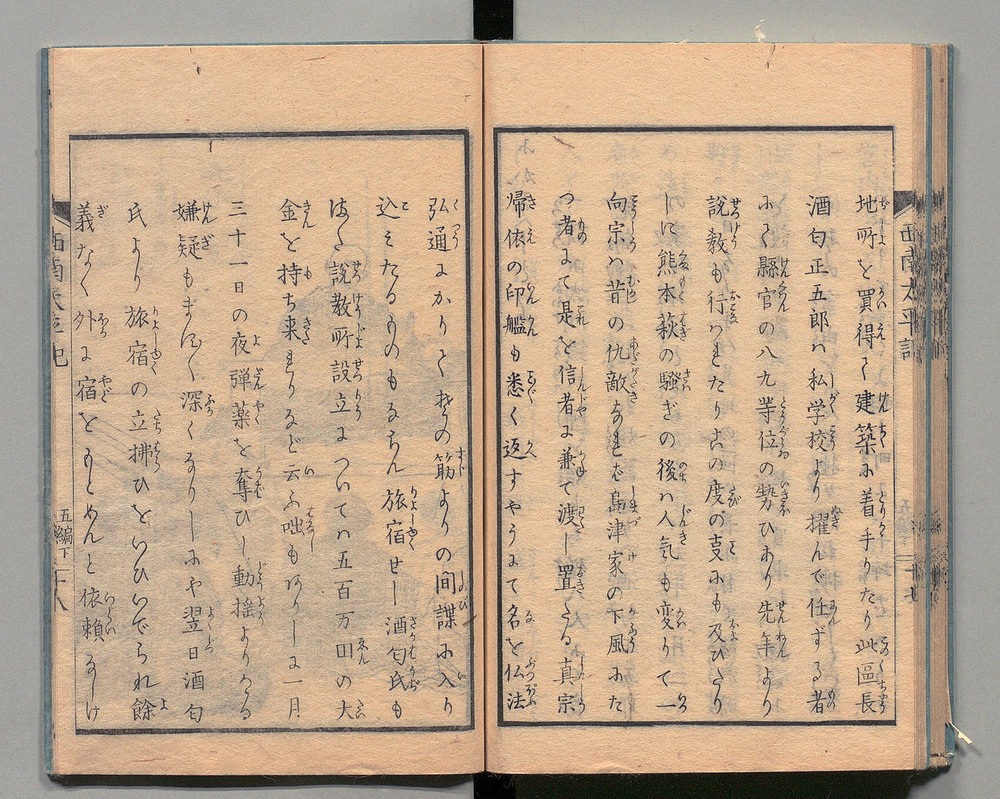 西南太平記
地所を買得て建築に着手りたり此區長
酒匂正五郎ハ私学校より擢んで任ずる者
にて縣官の八九等位の勢ひあり先年より
説教も行ハれたり古の度の支にも及びたり
しに熊本萩の騒ぎの後ハ人気も変りて一
向宗ハ昔の仇敵なれど島津家の下風にた
つ者にて是を信者に兼て渡し置たる真宗
帰依の印艦も悉く返すやうにて名を仏法
弘通にかりて其の筋よりの間諜に入り
込ミたるものもあらん旅宿せし酒匂氏も
はた説教所設立についてハ五百万円の大
金を持ち来まりなど云ふ咄もありしに一月
三十一日の夜弾薬を奪ひし動揺よりかゝる
嫌疑もます〳〵深くなりしにや翌日酒匂
氏より旅宿の立拂ひをいひいでられ余
義なく外に宿をもとめんと依頼なしけ
西南太平記
五編下
十八